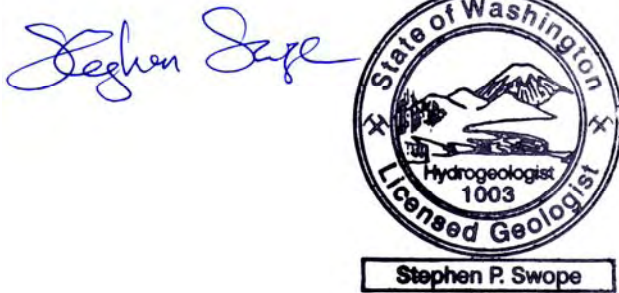 Stephen Swope
State of Washington
Hydrogeologist
1003
Licensed Geologist
Stephen P. Swope